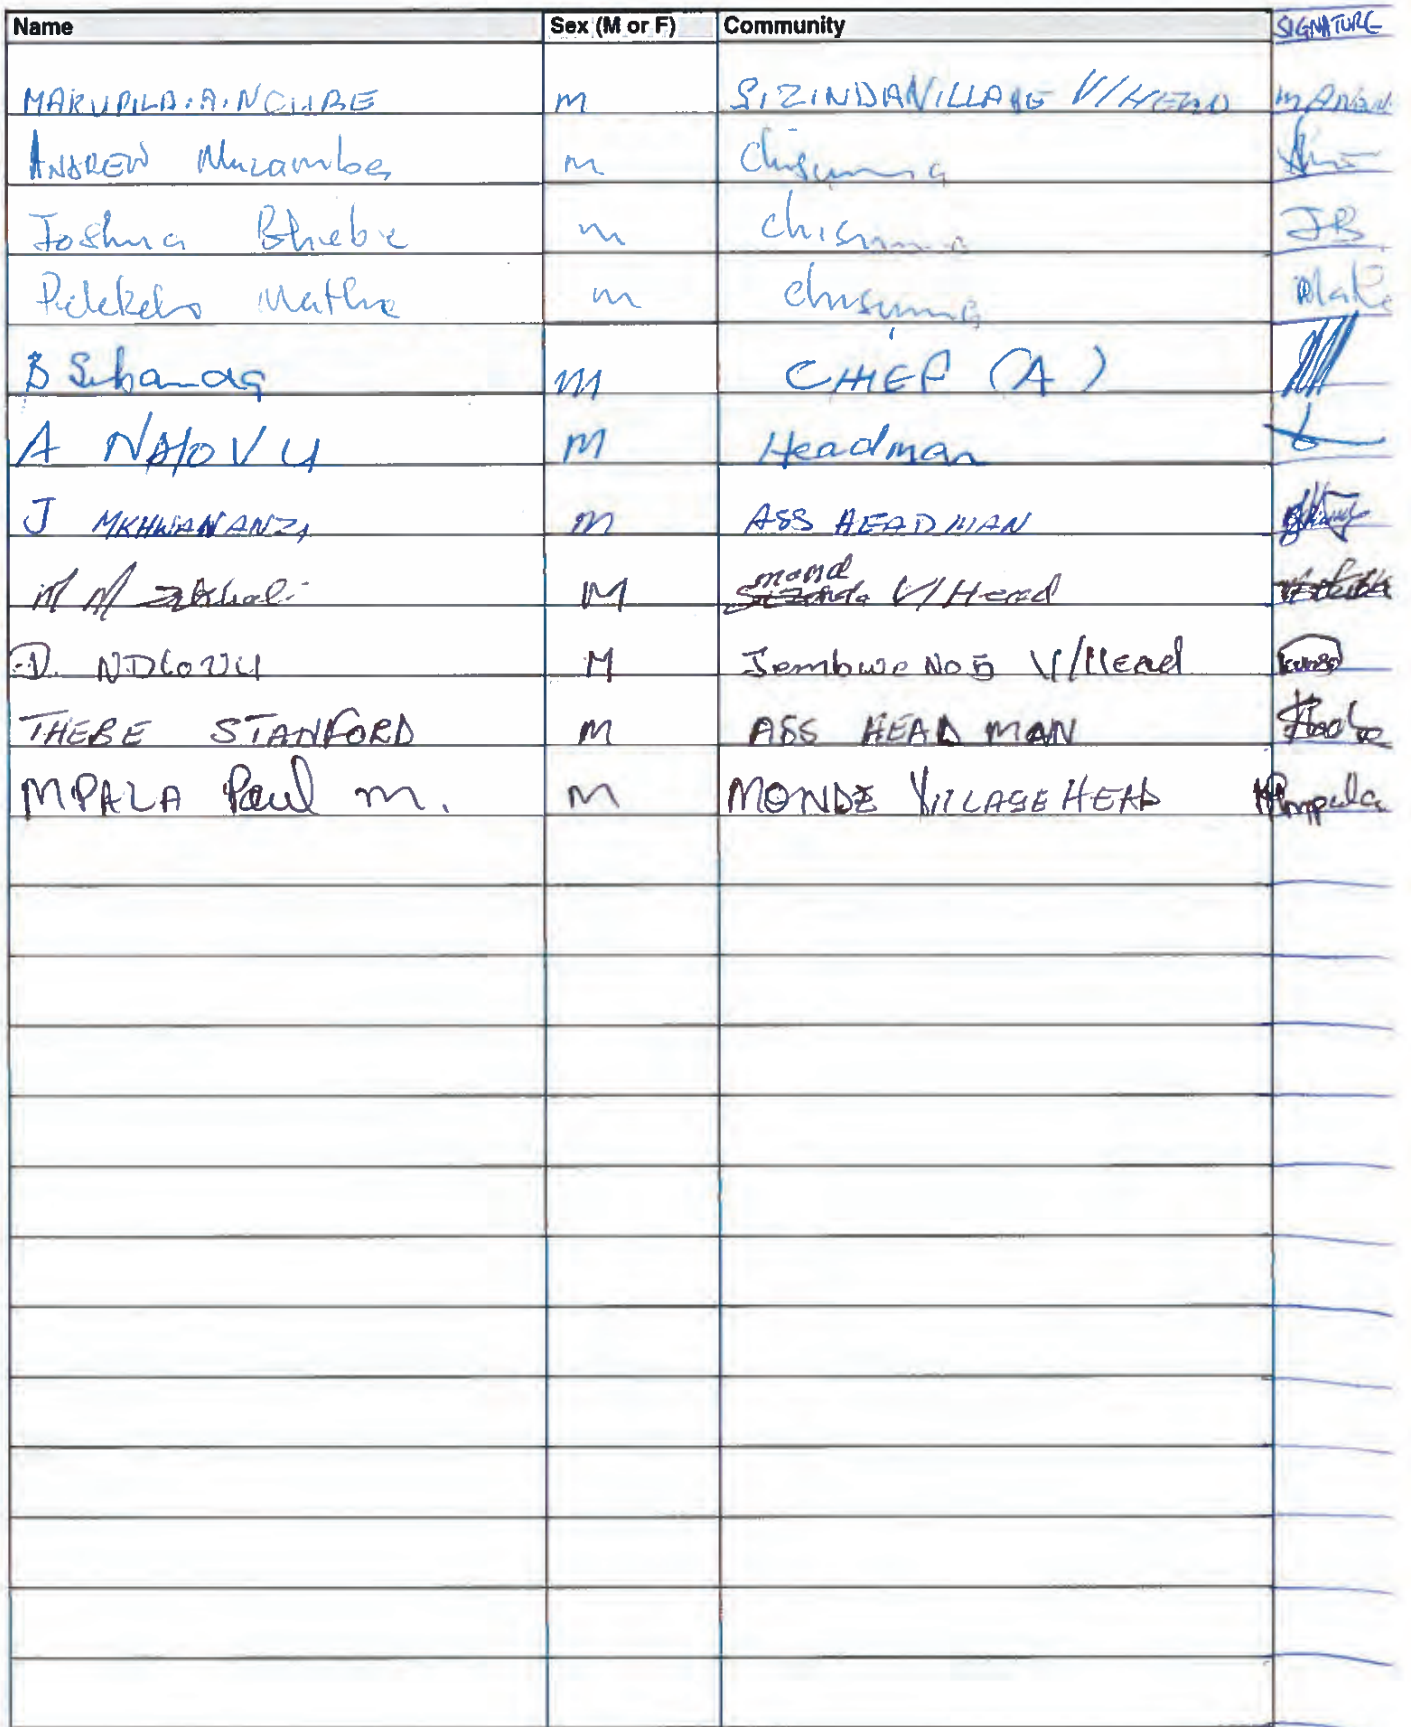 Name Sex (M or F) Community SIGNATURE
MARUPILA.A.NCUBE M SIZINDA VILLAGE V/HEAD
ANDREW Muzamba M Chisuma
Joshua Bhebe M Chisuma JB
Mathe M Chisuma
B Sibanda M CHIEF (A)
A NDLOVU M Headman
J MKHWANANZI M ASS HEADMAN
M M M mond V/Head
D. NDLOVU M Jembwe No 5 V/Head
THEBE STANFORD M ASS HEAD MAN
MPALA Paul M. M MONDE VILLAGE HEAD Mpala